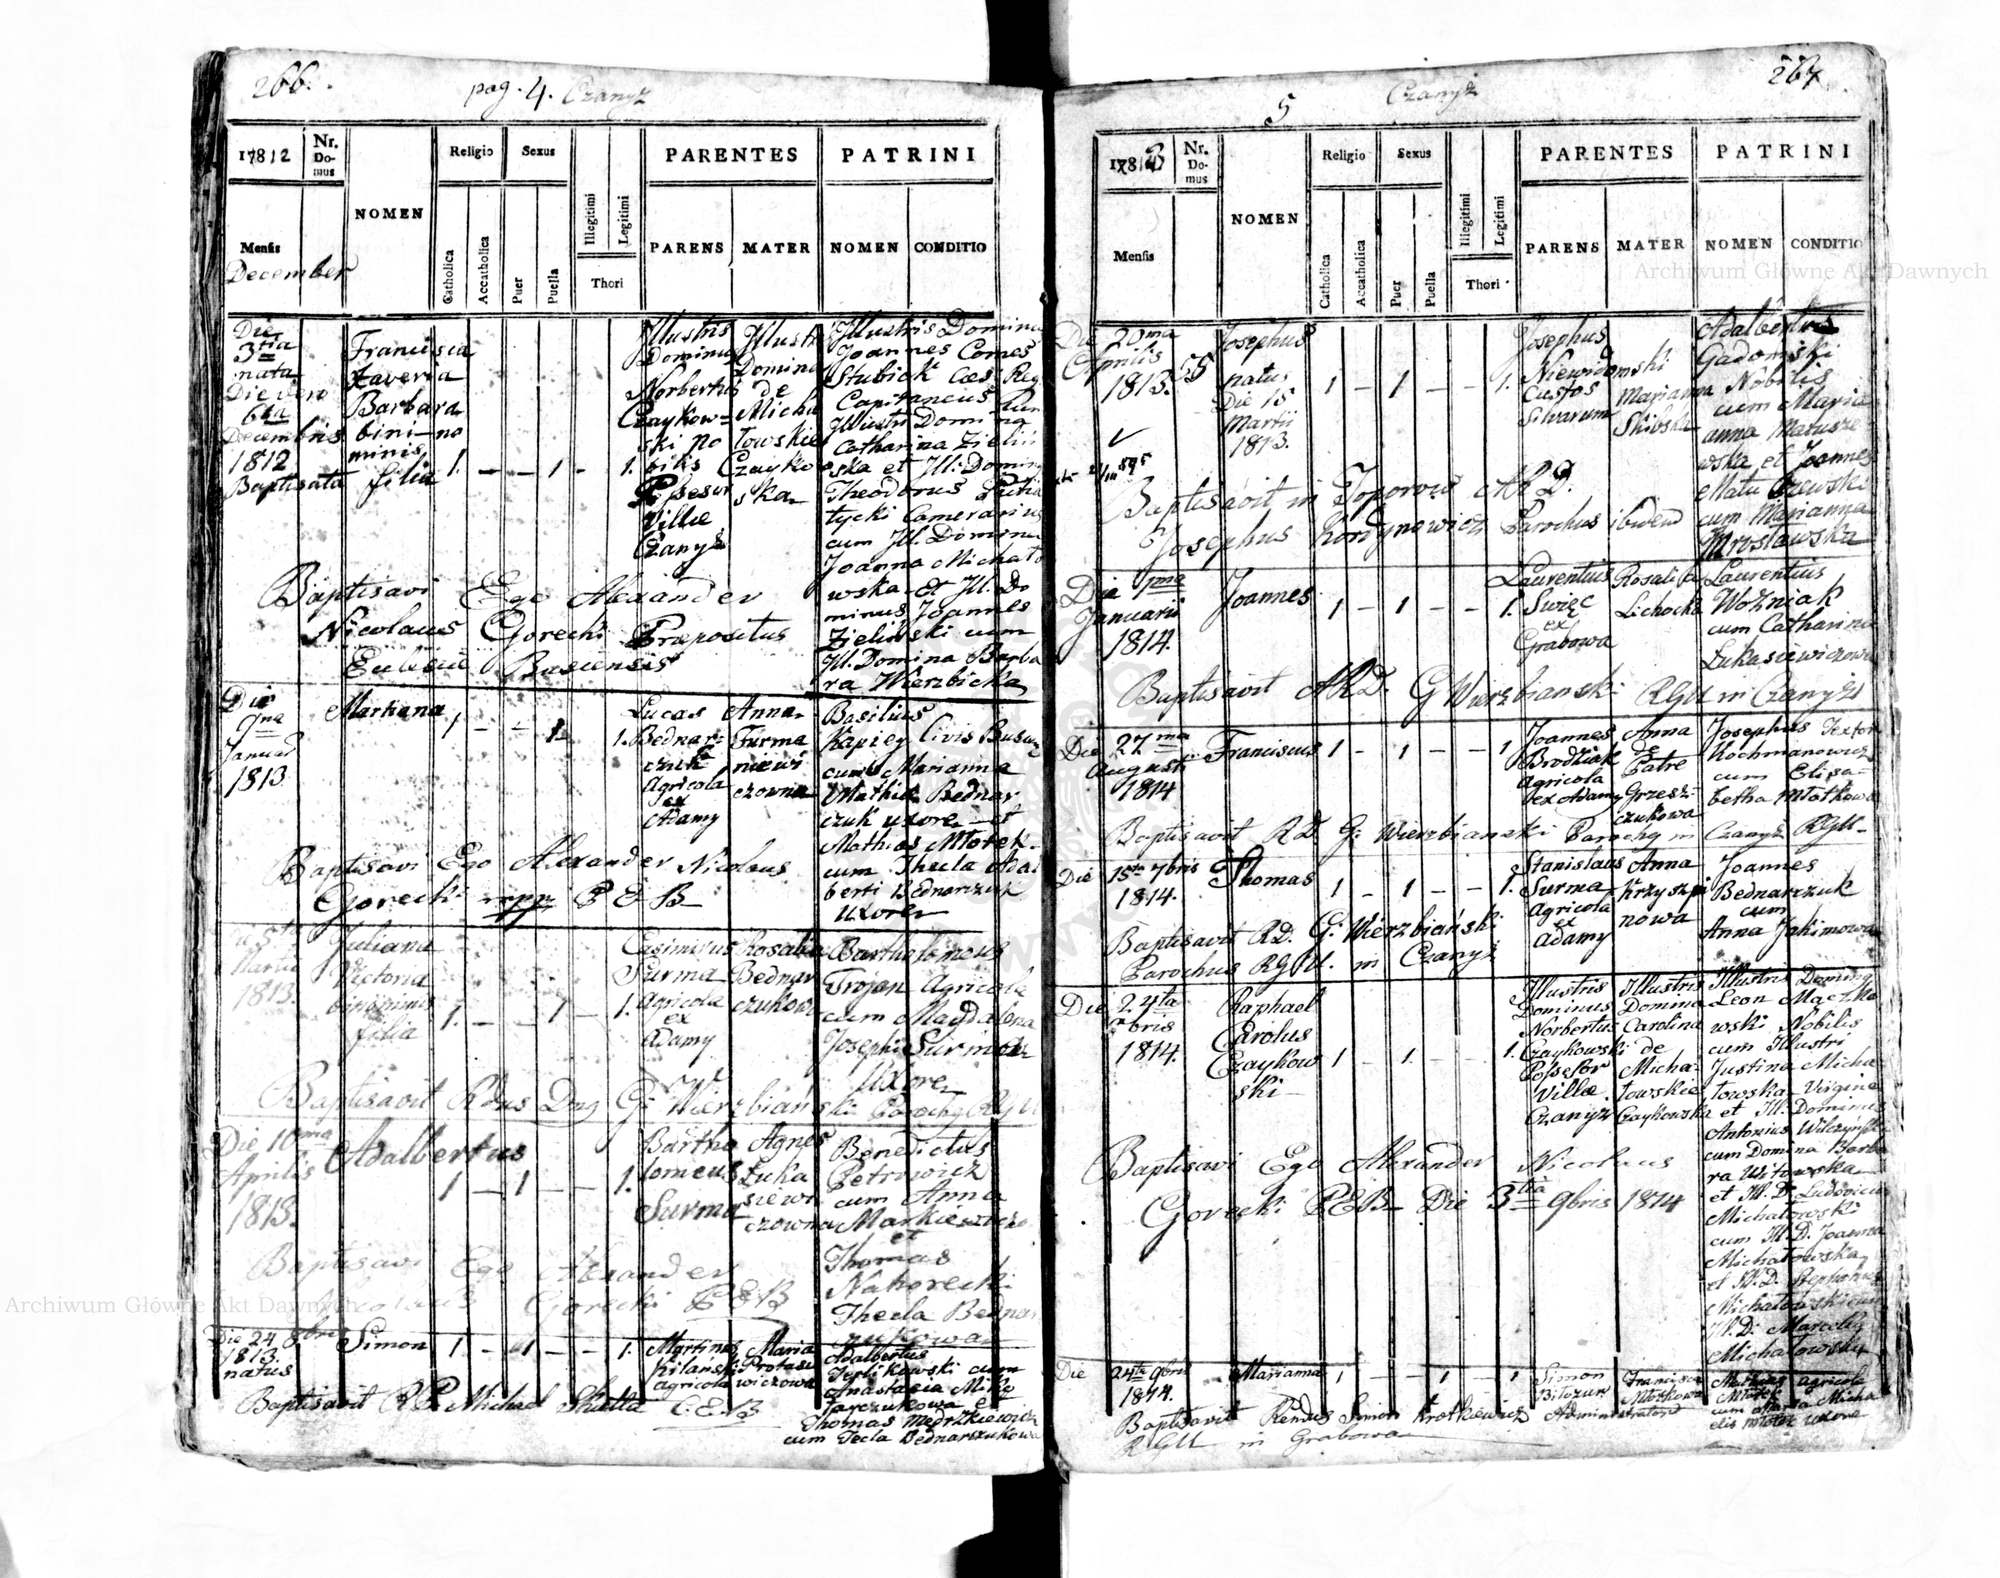 266.
pag. 4. Czanyż
17812
Nr. Domus
NOMEN
Religio
Sexus
Illegitimi
Legitimi
PARENTES
PATRINI
Mensis
December
Catholica
Accatholica
Puer
Puella
Thori
PARENS
MATER
NOMEN
CONDITIO
Die
3tia
nata
Die vero
6ta
Decembris
1812
Baptisata
Francisca
Xaveria
Barbara
trini-no
minis
filia
1. – – 1 – 1.
Illustris
Dominus
Norbertus
Czaykow-
ski No
bilis
Possesor
Villæ
Czanyż
Illustris
Domina
de
Micha
lowskie
Czayko
ska
Illustris Dominus
Joannes Comes
Stubick Cæs: Reg
Capitaneus cum
Illustri Domina
Catharina Zieliń
ska et Ill: Dominus
Theodorus
tycki Camerarius
cum Ill. Domina
Joanna Michało
wska et Ill. Do
minus Joannes
Zieliński cum
Ill. Domina Barba
ra Wierzbicka
Baptisavi Ego Alexander
Nicolaus Gorecki Præpositus
Eclesiæ Buscensis
Die
9na
Januari
1813.
Marianna
1 – – 1 – 1.
Lucas
Bednar-
czuk
Agricola
ex
Adamy
Anna
Furma
niewi
czowna
Basilius
Kapiey Civis Buscen
cum Marianna
Mathiæ Bednar
czuk uxore et
Mathias Młotek
cum Thecla Adal
berti Bednarczuk
Uxore
Baptisavi Ego Alexander Nicolaus
Gorecki mpp P E B
Martii
1813.
Juliana
Victoria
binominis
filia
1. – – 1 – 1.
Casimirus
Surma
Agricola
ex
Adamy
Rosalia
Bednar
czukowa
Bartholomeus
Trojan Agricola
cum Magdalena
Josephi Surmow
Uxore
Baptisavit Rdus Dns G. Wierzbiański Parochus RGU
Die 10ma
Aprilis
1813.
Adalbertus
1 – 1 – – 1.
Bartho
lomeus
Surma
Agnes
Łuka
siewi
czowna
Benedictus
Petrowicz
cum Anna
Markiewiczo
et
Thomas
Nahorecki
Thecla Bednar
czukowa
Baptisavi Ego Alexander
Nicolaus Gorecki P E B
Die 24 8bris
1813.
natus
Simon
1. – 1 – – 1.
Martinus
Kilański
Agricola
Maria
Protase
wiczowa
Adalbertus
Teplikowski cum
Anastasia Miko
łayczukowa et
Thomas Mędrzkiewicz
cum Tecla Bednarzukowa
Baptisavit R. P. Michael Skutta C. E. B
267
5
Czanyż
17813
Nr. Domus
NOMEN
Religio
Sexus
Illegitimi
Legitimi
PARENTES
PATRINI
Mensis
Catholica
Accatholica
Puer
Puella
Thori
PARENS
MATER
NOMEN
CONDITIO
Die 20ma
Aprilis
1813.
55
Josephus
natus
Die 15
Martii
1813.
1 – 1 – – 1.
Josephus
Niewidomski
Custos
Silvarum
Marianna
Skibska
Adalbertus
Gadomski
Nobilis
cum Mari
anna Matusze
wska et Joannes
Matuszewski
cum Marianna
Mrosławska
Baptisavit in Toporow A R D.
Josephus Kordynowicz Parochus ibidem
Die 1ma
Januarii
1814.
Joannes
1 – 1 – – 1.
Laurentius
Swięc
ex
Grabowa
Rosalia
Lichocka
Laurentius
Woźniak
cum Catharina
Łukasiewiczowa
Baptisavit A R D. G Wierzbianski RGU in Czanyż
Die 27ma
Augusti
1814
Franciscus
1 – 1 – – 1
Joannes
Brodziak
Agricola
ex Adamy
Anna
de
Patre
Grzesz-
czukowa
Josephus Textor
Kochmanowicz
cum Elisa-
betha Młotkowa
Baptisavit R D. G. Wierzbianski Parochus in Czanyż RGU
Die 15ta 7bris
1814.
Thomas
1 – 1 – – 1.
Stanislaus
Surma
Agricola
ex
Adamy
Anna
Krzyszpi
nowa
Joannes
Bednarczuk
cum
Anna Jakimowa
Baptisavit R D. G. Wierzbiański
Parochus RGU. in Czanyż
Die 24ta
8bris
1814.
Raphael
Carolus
Czaykow
ski
1 – 1. – – 1.
Illustris
Dominus
Norbertus
Czaykowski
Possesor
Villæ
Czanyż
Illustris
Domina
Carolina
de
Micha-
łowskie
Czaykowska
Illustris Dominus
Leon Maczko
wski Nobilis
cum Illustri
Justina Micha
łowska Virgine
et Ill. Dominus
Antonius Wilczyński
cum Domina Barba
ra Witowska
et Ill. D. Ludovicus
Michałowski
cum Ill. D. Joanna
Michałowska
et Ill. D. Stephanus
Michałowski cum
Ill. D. Marcella
Michałowska
Baptisavi Ego Alexander Nicolaus
Gorecki P. E. B. Die 3tia 9bris 1814
Die 24ta 9bris
1814.
Marianna
1 – – 1 – 1
Simon
Biłozur
Francisca
Młotkowa
Mathias Agricola
Młotek
cum Maria Micha
elis Młotek Uxore
Baptisavit Rendus Simon Krotkiewicz Administrator
R G U in Grabowa
Archiwum Główne Akt Dawnych
Archiwum Główne Akt Dawnych